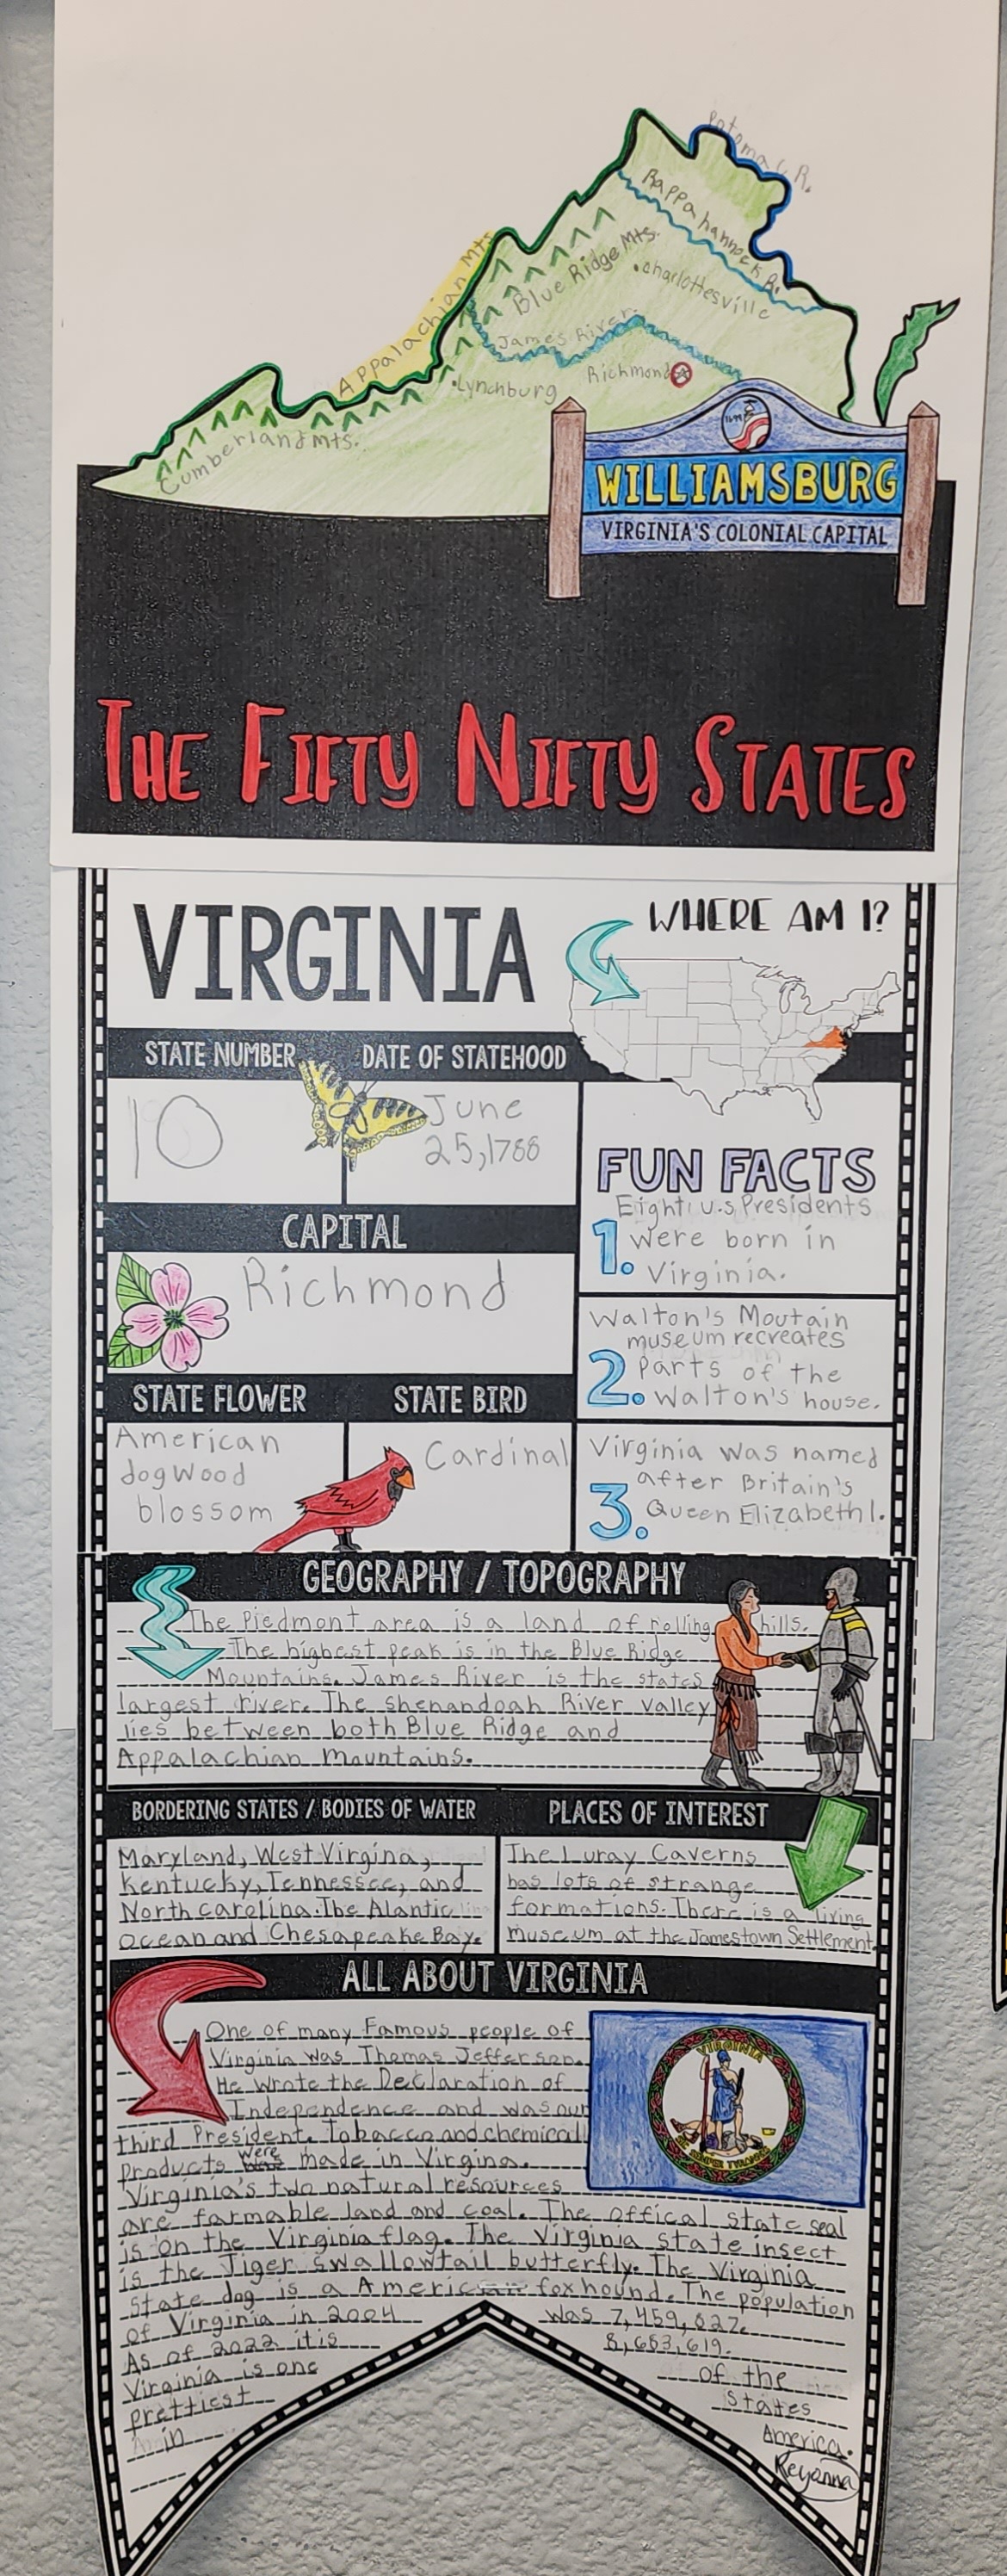 Potomac R.
Rappahannock R.
Appalachian Mts.
Blue Ridge Mts.
.Charlottesville
James River.
Richmond
.Lynchburg
Cumberland Mts.
1699
WILLIAMSBURG
VIRGINIA'S COLONIAL CAPITAL
THE FIFTY NIFTY STATES
VIRGINIA
WHERE AM I?
STATE NUMBER
DATE OF STATEHOOD
10
June
25,1788
CAPITAL
Richmond
STATE FLOWER
STATE BIRD
American
dogwood
blossom
Cardinal
FUN FACTS
1.
Eight u.s Presidents
were born in
Virginia.
2.
Walton's Moutain
museum recreates
parts of the
Walton's house.
3.
Virginia was named
after Britain's
Queen Elizabeth I.
GEOGRAPHY / TOPOGRAPHY
The Piedmont area is a land of rolling hills.
The highest peak is in the Blue Ridge
Mountains. James River is the states
largest river. The Shenandoah River valley
lies between both Blue Ridge and
Appalachian mountains.
BORDERING STATES / BODIES OF WATER
Maryland, West Virgina,
Kentucky, Tennessee, and
North carolina. The Alantic
ocean and Chesapeake Bay.
PLACES OF INTEREST
The Luray Caverns
has lots of strange
formations. There is a living
museum at the Jamestown Settlement.
ALL ABOUT VIRGINIA
One of many Famous people of
Virginia was Thomas Jefferson.
He wrote the Declaration of
Independence and was our
third President. Tobacco and chemical
products were made in Virgina.
Virginia's two natural resources
are farmable land and coal. The offical state seal
is on the Virginia flag. The Virginia state insect
is the Tiger swallowtail butterfly. The Virginia
State dog is a American foxhound. The population
of Virginia in 2004 was 7,459,827.
As of 2022 it is 8,683,619.
Virginia is one of the
prettiest states
in America.
Keyanna
VIRGINIA